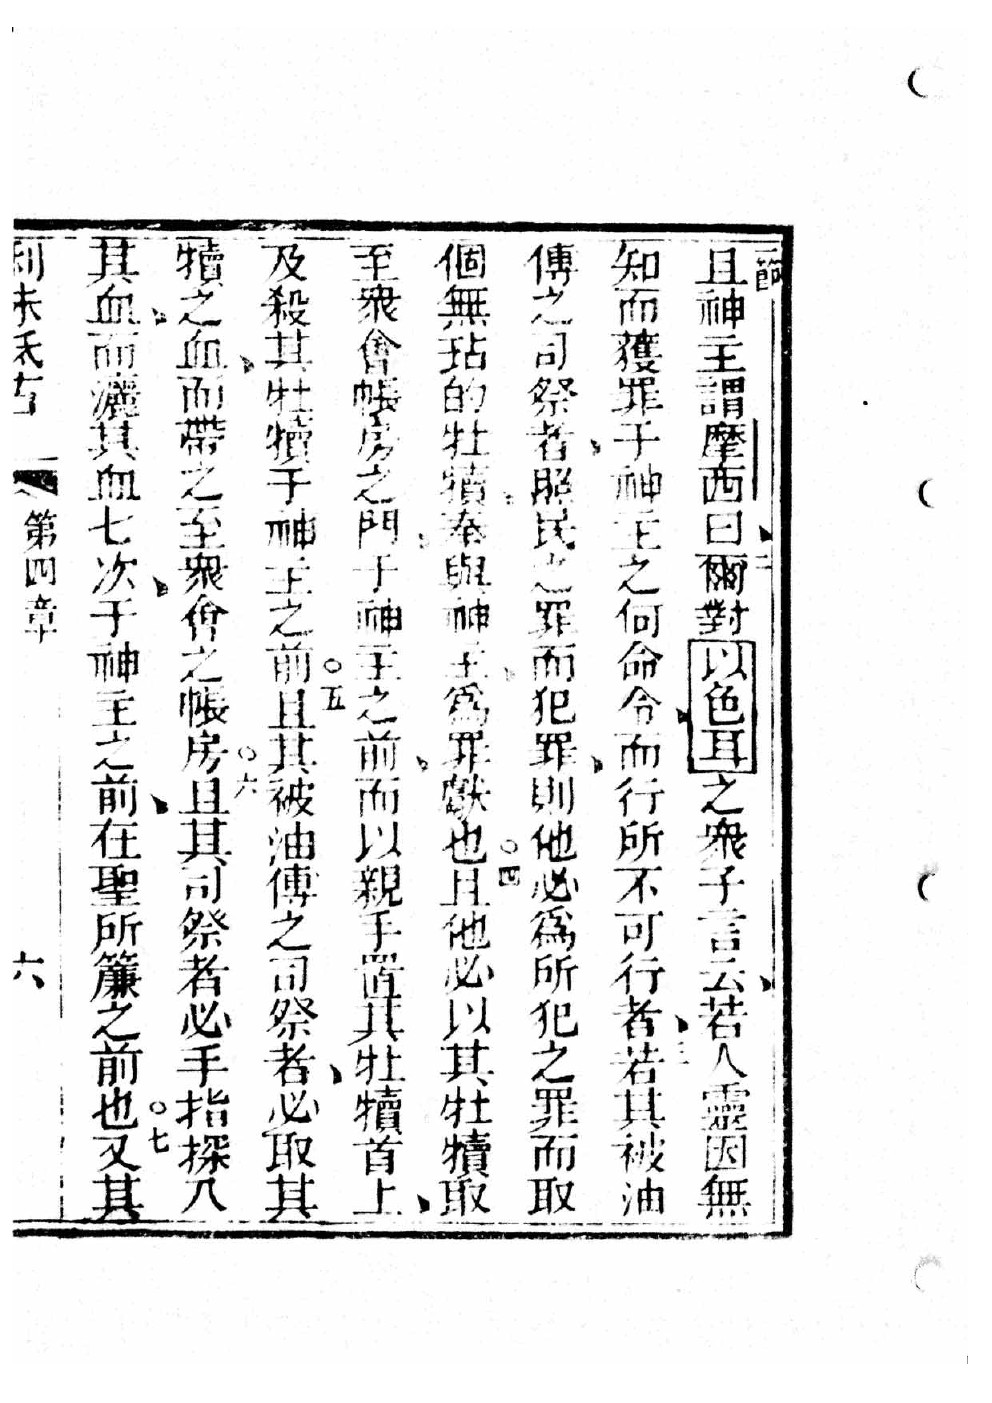 一節
且神主謂摩西曰爾對以色耳之衆子言云若人靈因無
二
知而獲罪于神主之何命令而行所不可行者若其被油
三
傅之司祭者照民之罪而犯罪則他必爲所犯之罪而取
個無玷的牡犢奉與神主爲罪獻也且他必以其牡犢取
○四
至衆會帳房之門于神主之前而以親手置其牡犢首上
及殺其牡犢于神主之前且其被油傅之司祭者必取其
○五
犢之血而帶之至衆會之帳房且其司祭者必手指探入
○六
其血而灑其血七次于神主之前在聖所簾之前也又其
○七
利未氏古 第四章 六